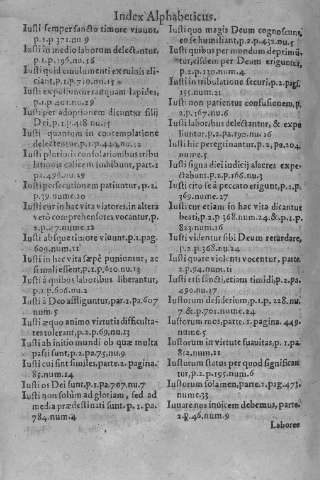 Index Alphabeticus.
Iusti semper sancto timore viuunt,
p.1.p.371.nu.9
Iusti in medio laborum delectantur,
p.1.p.196.nu.56
Iusti quid emolumenti ex malis eliciant,
Iusti expoliuntur tanquam lapides,
p.1.p.401.nu.29
Iusti per adoptionem dicuntur filij
Dei, p.1.p.418.nu.15
Iusti quantum in contemplatione
delectentur, p.1.p.440.nu.12
Iusti pluribus consolationibus tribu
lationis calicem imbibunt, part.1
pa.496.nu.19
Iusti persecutionem patiuntur, p.2.
p.39.nume.20
Iusti cur in hac vita viatores, in altera
verò comprehensores vocantur, p.
2.p.07.nume.12
Iusti absque timore viuunt.p.2.pag.
609.num.11
Iusti in hac vita sæpè puniuntur, ac
si mali essent, p.2.p.610.nu.13
Iusti à quibus laboribus liberantur,
p.2.p.602.nu.6
Iusti à Deo affliguntur, par.2.pa.607
num.5
Iusti æquo animo virtutis difficultates
tolerant, p.2.p.69.nu.13
Iusti ab initio mundi ob quæ multa
passi sunt, p.2.pa.75.nu.9
Iusti cui sint similes, parte 2. pagina.
85.num.14
Iusti os Dei sunt, p.2.pa.707.nu.7
Iusti non solùm ad gloriam, sed ad
media prædestinati sunt. p.2.pa.
784.num.4
Iusti quo magis Deum cognoscunt,
eo se humiliant, p.2.p.432.nu.5
Iusti quibus per mundum deptimuntur,
eisdem per Deum eriguntur,
p.2.p.130.num.4
Iusti in tribulatione secuti, p.2.pag.
155.num.21
Iusti non patiuntur confusionem, p.
2.p.167.nu.6
Iusti laboribus delectantur, & expoliuntur,
p.2.pa.190.nu.16
Iusti hic peregrinantur, p.2.pa.204.
nume.2
Iusti signa diei iudicij alacres expectabunt.
p.2.p.166.nu.3
Iusti cito se à peccato erigunt, p.2.p.
369.nume.27
Iusti cur etiam in hac vita dicantur
beati, p.2.p.368.num.24.&.p.1.p.
823.num.16
Iusti videntur sibi Deum retardare,
p.2.p.368.nu.24
Iusti quare violenti vocentur, parte.
2.p.94.num.11
Iusti etsi sancti, etiam timidi, p.2.pa.
490.nu.17
Iustorum desiderium, p.1.p.228.nu.
7 & p.701.nume.24
Iustorum mors, parte.1. pagina.449.
nume.5
Iustorum in virtute suauitas, p.1.pa.
812.num.11
Iustorum status per quod significantur,
p.2.p.195.num.6
Iustorum solamen, parte.1.pag.473.
nume.33
Iuuare nos inuicem debemus, parte.
2.p.46.num.9
Labores